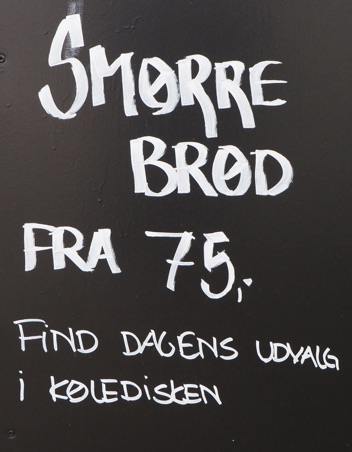 SMØRRE
BRØD
FRA 75,-
FIND DAGENS UDVALG
i KØLEDISKEN